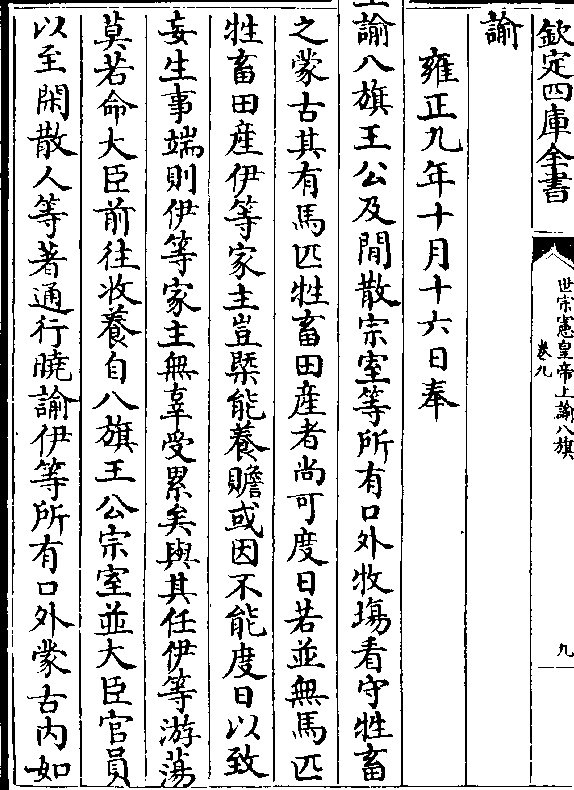 欽定四庫全書
世宗憲皇帝上諭八旗
卷九
九
諭
雍正九年十月十六日奉
上諭八旗王公及閒散宗室等所有口外牧塲看守牲畜
之蒙古其有馬匹牲畜田産者尚可度日若並無馬匹
牲畜田産伊等家主豈槩能養贍或因不能度日以致
妄生事端則伊等家主無辜受累矣與其任伊等游蕩
莫若命大臣前往收養自八旗王公宗室並大臣官員
以至閑散人等著通行曉諭伊等所有口外蒙古内如